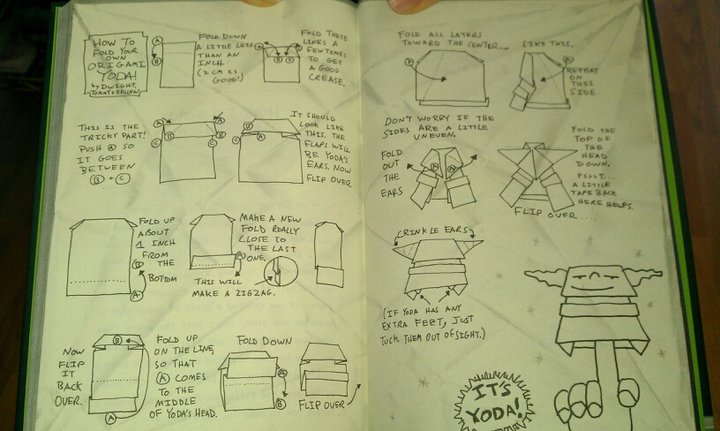 HOW TO
FOLD YOUR
OWN
ORIGAMI
YODA!
by DWIGHT,
TOMMY & KELLEN
A
B
FOLD DOWN
A LITTLE LESS
THAN AN
INCH
(2 CM IS
GOOD!)
FOLD THESE
LINES A
FEW TIMES
TO GET
A GOOD
CREASE.
A
A
B
B
THIS IS THE
TRICKY PART!
PUSH A SO
IT GOES
BETWEEN
B + C
A
A
B
B
C
C
A
B
C
IT SHOULD
LOOK LIKE
THIS. THE
FLAPS WILL
BE YODA'S
EARS. NOW
FLIP OVER
FOLD UP
ABOUT
1 INCH
FROM
THE
BOTTOM
B
A
MAKE A NEW
FOLD REALLY
CLOSE TO
THE LAST
ONE,
A
THIS WILL
MAKE A ZIGZAG.
NOW
FLIP
IT
BACK
OVER.
B
A
FOLD UP
ON THE LINE,
SO THAT
A COMES
TO THE
MIDDLE
OF YODA'S HEAD.
FOLD DOWN
A
B
FLIP OVER
FOLD ALL LAYERS
TOWARD THE CENTER...
A
LIKE THIS.
A
REPEAT
ON
THIS
SIDE.
DON'T WORRY IF THE
SIDES ARE A LITTLE
UNEVEN.
FOLD
OUT
THE
EARS
A
A
FOLD THE
TOP OF
THE
HEAD
DOWN.
PSSST...
A LITTLE
TAPE BACK
HERE HELPS.
FLIP OVER....
CRINKLE EARS
(IF YODA HAS ANY
EXTRA FEET, JUST
TUCK THEM OUT OF SIGHT.)
IT'S
YODA!